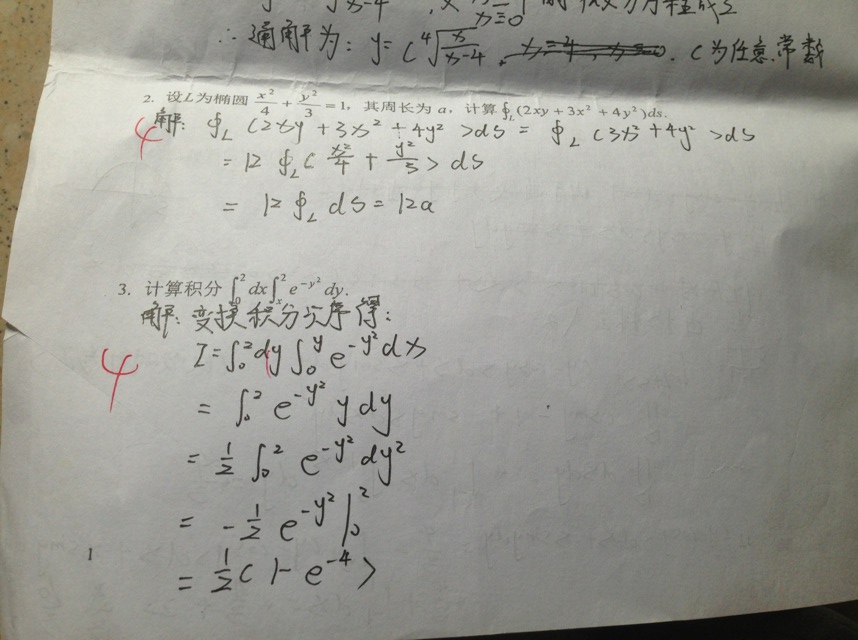 ∴ 通解为: y = C ⁴√(x/(x-4)) . C为任意常数
2. 设L为椭圆 x²/4 + y²/3 = 1, 其周长为 a, 计算∮_L(2xy + 3x² + 4y²)ds.
4
解: ∮_L (2xy + 3x² + 4y²)ds = ∮_L (3x² + 4y²)ds
= 12 ∮_L ( x²/4 + y²/3 ) ds
= 12 ∮_L ds = 12a
3. 计算积分 ∫₀² dx ∫ₓ² e^{-y²} dy.
解: 变换积分次序得:
4
I = ∫₀² dy ∫₀^y e^{-y²} dx
= ∫₀² e^{-y²} y dy
= 1/2 ∫₀² e^{-y²} dy²
= -1/2 e^{-y²} |₀²
= 1/2 ( 1 - e^{-4} )
1